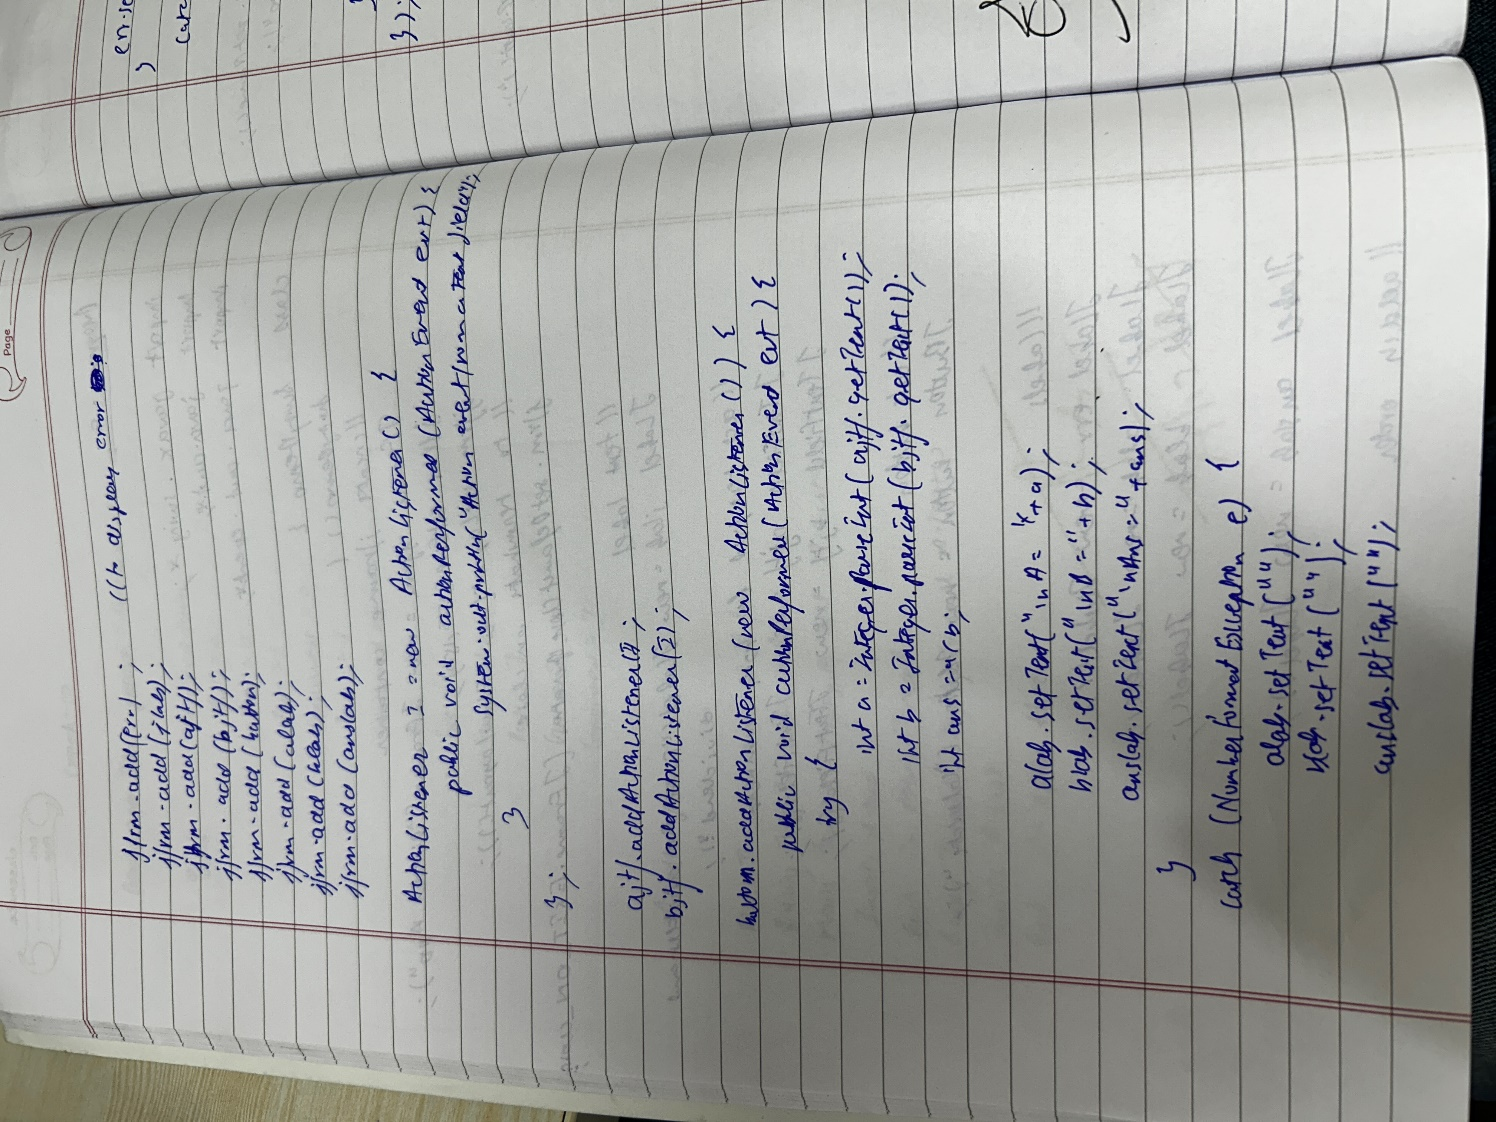 Page
jfrm.add(err); // to display error
jfrm.add(jlab);
jfrm.add(ajtf);
jfrm.add(bjtf);
jfrm.add(button);
jfrm.add(alab);
jfrm.add(blab);
jfrm.add(anslab);
ActionListener l = new ActionListener() {
public void actionPerformed (ActionEvent evt) {
System.out.println("Action event from a text field");
}
};
ajtf.addActionListener(l);
bjtf.addActionListener(l);
button.addActionListener(new ActionListener() {
public void actionPerformed (ActionEvent evt) {
try {
int a = Integer.parseInt(ajtf.getText());
int b = Integer.parseInt(bjtf.getText());
int ans = a/b;
alab.setText("\nA = "+a);
blab.setText("\nB = "+b);
anslab.setText("\nAns = "+ans);
}
catch (NumberFormatException e) {
alab.setText("");
blab.setText("");
anslab.setText("");
});